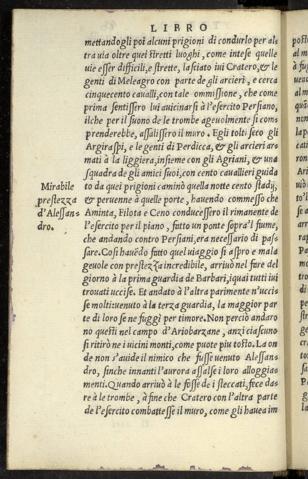 LIBRO
mettendogli poi alcuni prigioni di condurlo per al
tra uia oltre quei stretti luoghi, come intese quelle
uie esser difficili, e strette, lasciato iui Cratero, & le
genti di Meleagro con parte de gli arcieri, e cerca
cinquecento caualli, con tale ommissione, che come
prima sentissero lui auicinarsi à l'esercito Persiano,
ilche per il suono de le trombe ageuolmente si com
prenderebbe, assalissero il muro. Egli tolti seco gli
Argiraspi, e le genti di Perdicca, & gli arcieri ar
mati à la liggiera, insieme con gli Agriani, & una
squadra de gli amici suoi, con cento cauallieri guida
to da quei prigioni caminò quella notte cento stadij,
& peruenne à quelle porte, hauendo commesso che
Aminta, Filota e Ceno conducessero il rimanente de
l'esercito per il piano, fatto un ponte sopra'l fiume,
che andando contro Persiani, era necessario di pas-
sare. Così hauēdo fatto quel uiaggio sì aspro e mala
geuole con prestezza incredibile, arriuò nel fare del
giorno à la prima guardia de Barbari, iquai tutti iui
trouati uccise. Et andato à l'altra parimente n'uccis
se molti: uenuto à la terza guardia, la maggior par
te di loro se ne fuggì per timore. Non perciò andaro
no questi nel campo d'Ariobarzane, anzi ciascuno
si ritirò ne i uicini monti, come puote piu tosto. La on
de non s'auide il nimico che fusse uenuto Alessan-
dro, finche innanti l'aurora assalse i loro alloggia-
menti. Quando arriuò à le fosse de i steccati, fece da-
re à le trombe, à fine che Cratero con l'altra parte
de l'esercito combattesse il muro, come gli hauea im
Mirabile
prestezza
d'Alessan-
dro.